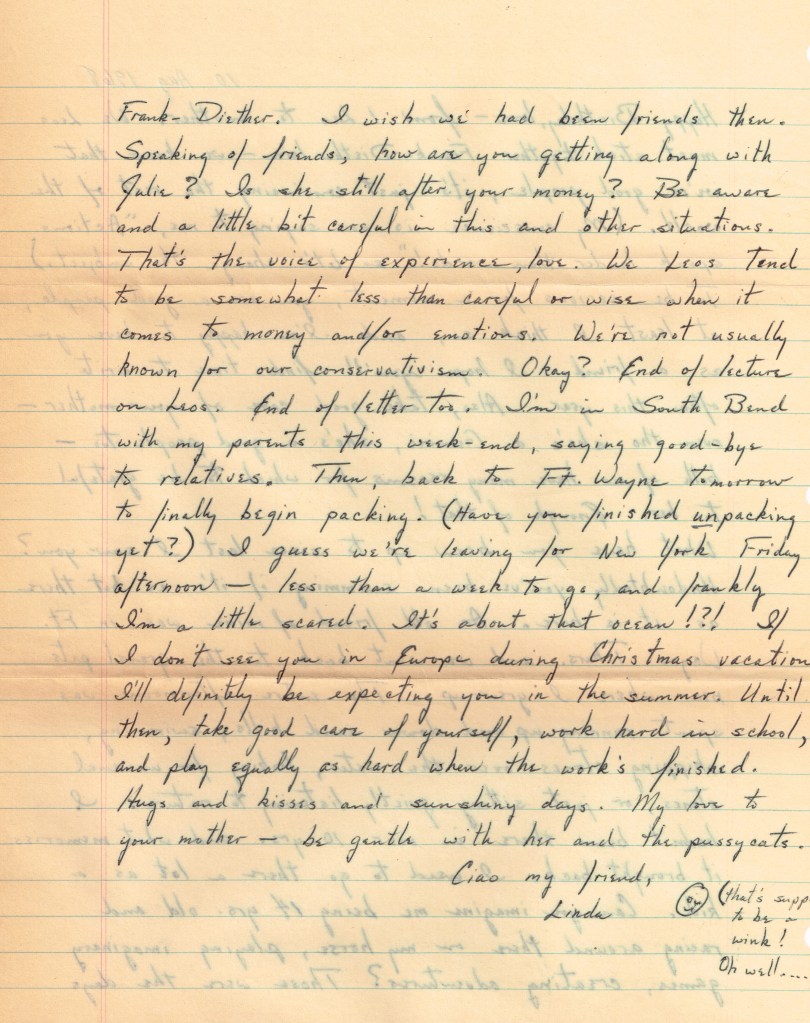 Frank-Diether. I wish we'd had been friends then.
Speaking of friends, how are you getting along with
Julie? Is she still after your money? Be aware
and a little bit careful in this and other situations.
That's the voice of experience, love. We Leos Tend
to be somewhat less than careful or wise when it
comes to money and/or emotions. We're not usually
known for our conservativism. Okay? End of lecture
on Leos. End of letter too. I'm in South Bend
with my parents this week-end, saying good-bye
to relatives. Then, back to Ft. Wayne tomorrow
to finally begin packing. (Have you finished unpacking
yet?) I guess we're leaving for New York Friday
afternoon — less than a week to go, and frankly
I'm a little scared. It's about that ocean!?! If
I don't see you in Europe during Christmas vacation
I'll definitely be expecting you in the summer. Until
then, take good care of yourself, work hard in school,
and play equally as hard when the work's finished.
Hugs and kisses and sunshiny days. My love to
your mother — be gentle with her and the pussycats.
Ciao my friend,
Linda
(that's supp
to be a
wink!
Oh well....